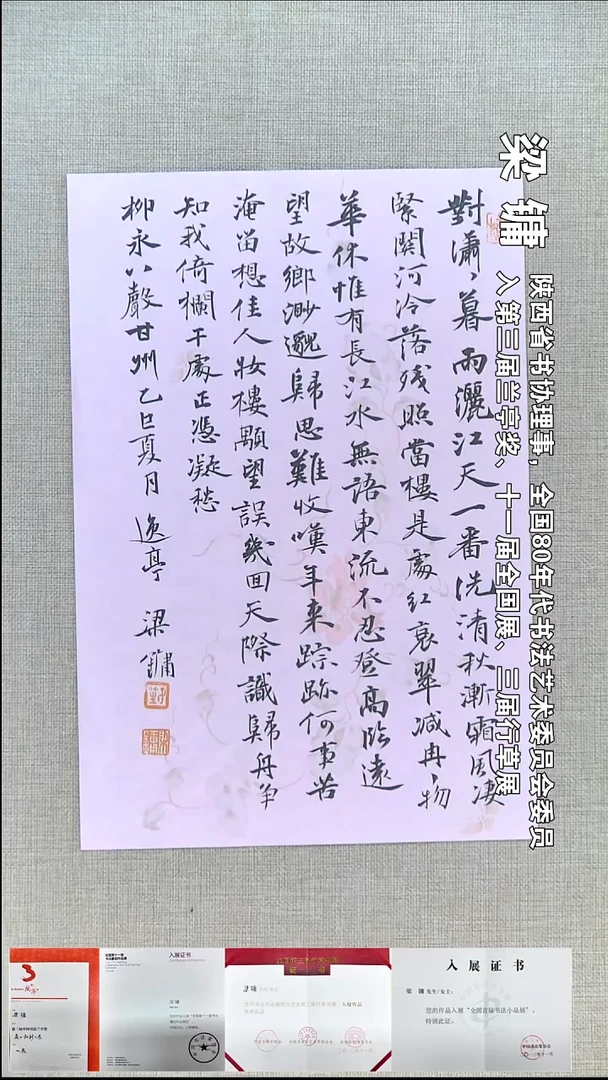 梁镛
陕西省书协理事，全国80年代书法艺术委员会委员
入第三届兰亭奖、十一届全国展、三届行草展
對瀟〻暮雨灑江天一番洗清秋漸霜風凄
緊關河冷落殘照當樓是處红衰翠減冉〻物
華休惟有長江水無語東流不忍登高臨遠
望故鄉渺邈歸思難收嘆年来踪跡何事苦
淹留想佳人妝樓顒望誤幾回天際識歸舟争
知我倚欄干處正憑凝愁
柳永八聲甘州乙巳夏月 逸亭 梁鏞
入展证书
入展证书
梁 镛 先生/女士：
您的作品入展“全国首届书法小品展”，
特颁此证。